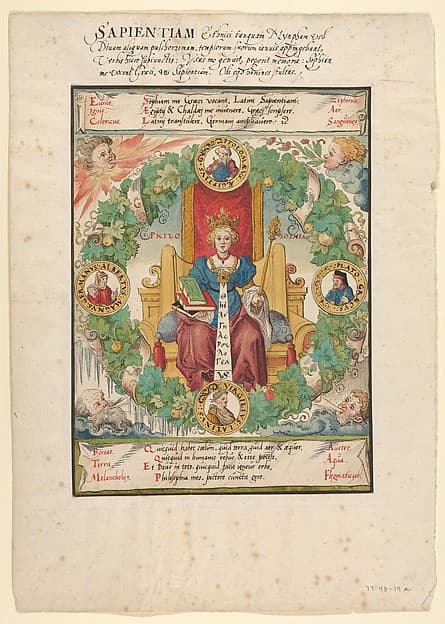 SAPIENTIAM Ethnici tanquam Nympham vel
Divam aliquam pulcherrimam, templorum suorum ianuis appingebant,
Verbis hisce subiunctis: me genuit, peperit memoria: Sophiam
me vocant Graeci, vos Sapientiam. Odi ego homines stultos
Eurus,
Ignis
Colericus
Sophiam me Graeci vocant, Latini Sapientiam,
Aegipty & Chaldaei me invenere, Graeci scripsere
Latini transtulere, Germani ampliavere
Zephirus
Aer,
Sanguineus
PHILO
SOPHIA
ALBERTVS
PLATO
VS
Boreas
Terra
Melancholicus
Quicquid habet coelum, quid terra, quid aer, & aequor,
Quicquid in humanis rebus, & esse potest,
Et Deus in toto, quicquid facit igneus orbe,
Philosophia meo, pectore cuncta gero.
Auster
Aqua
Flegmaticus
77-48-19 a